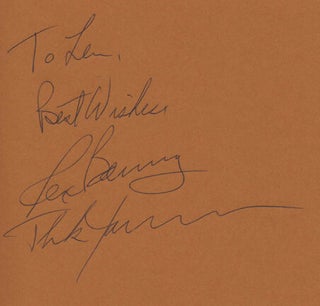 To Len,
Best Wishes
Rex Barney